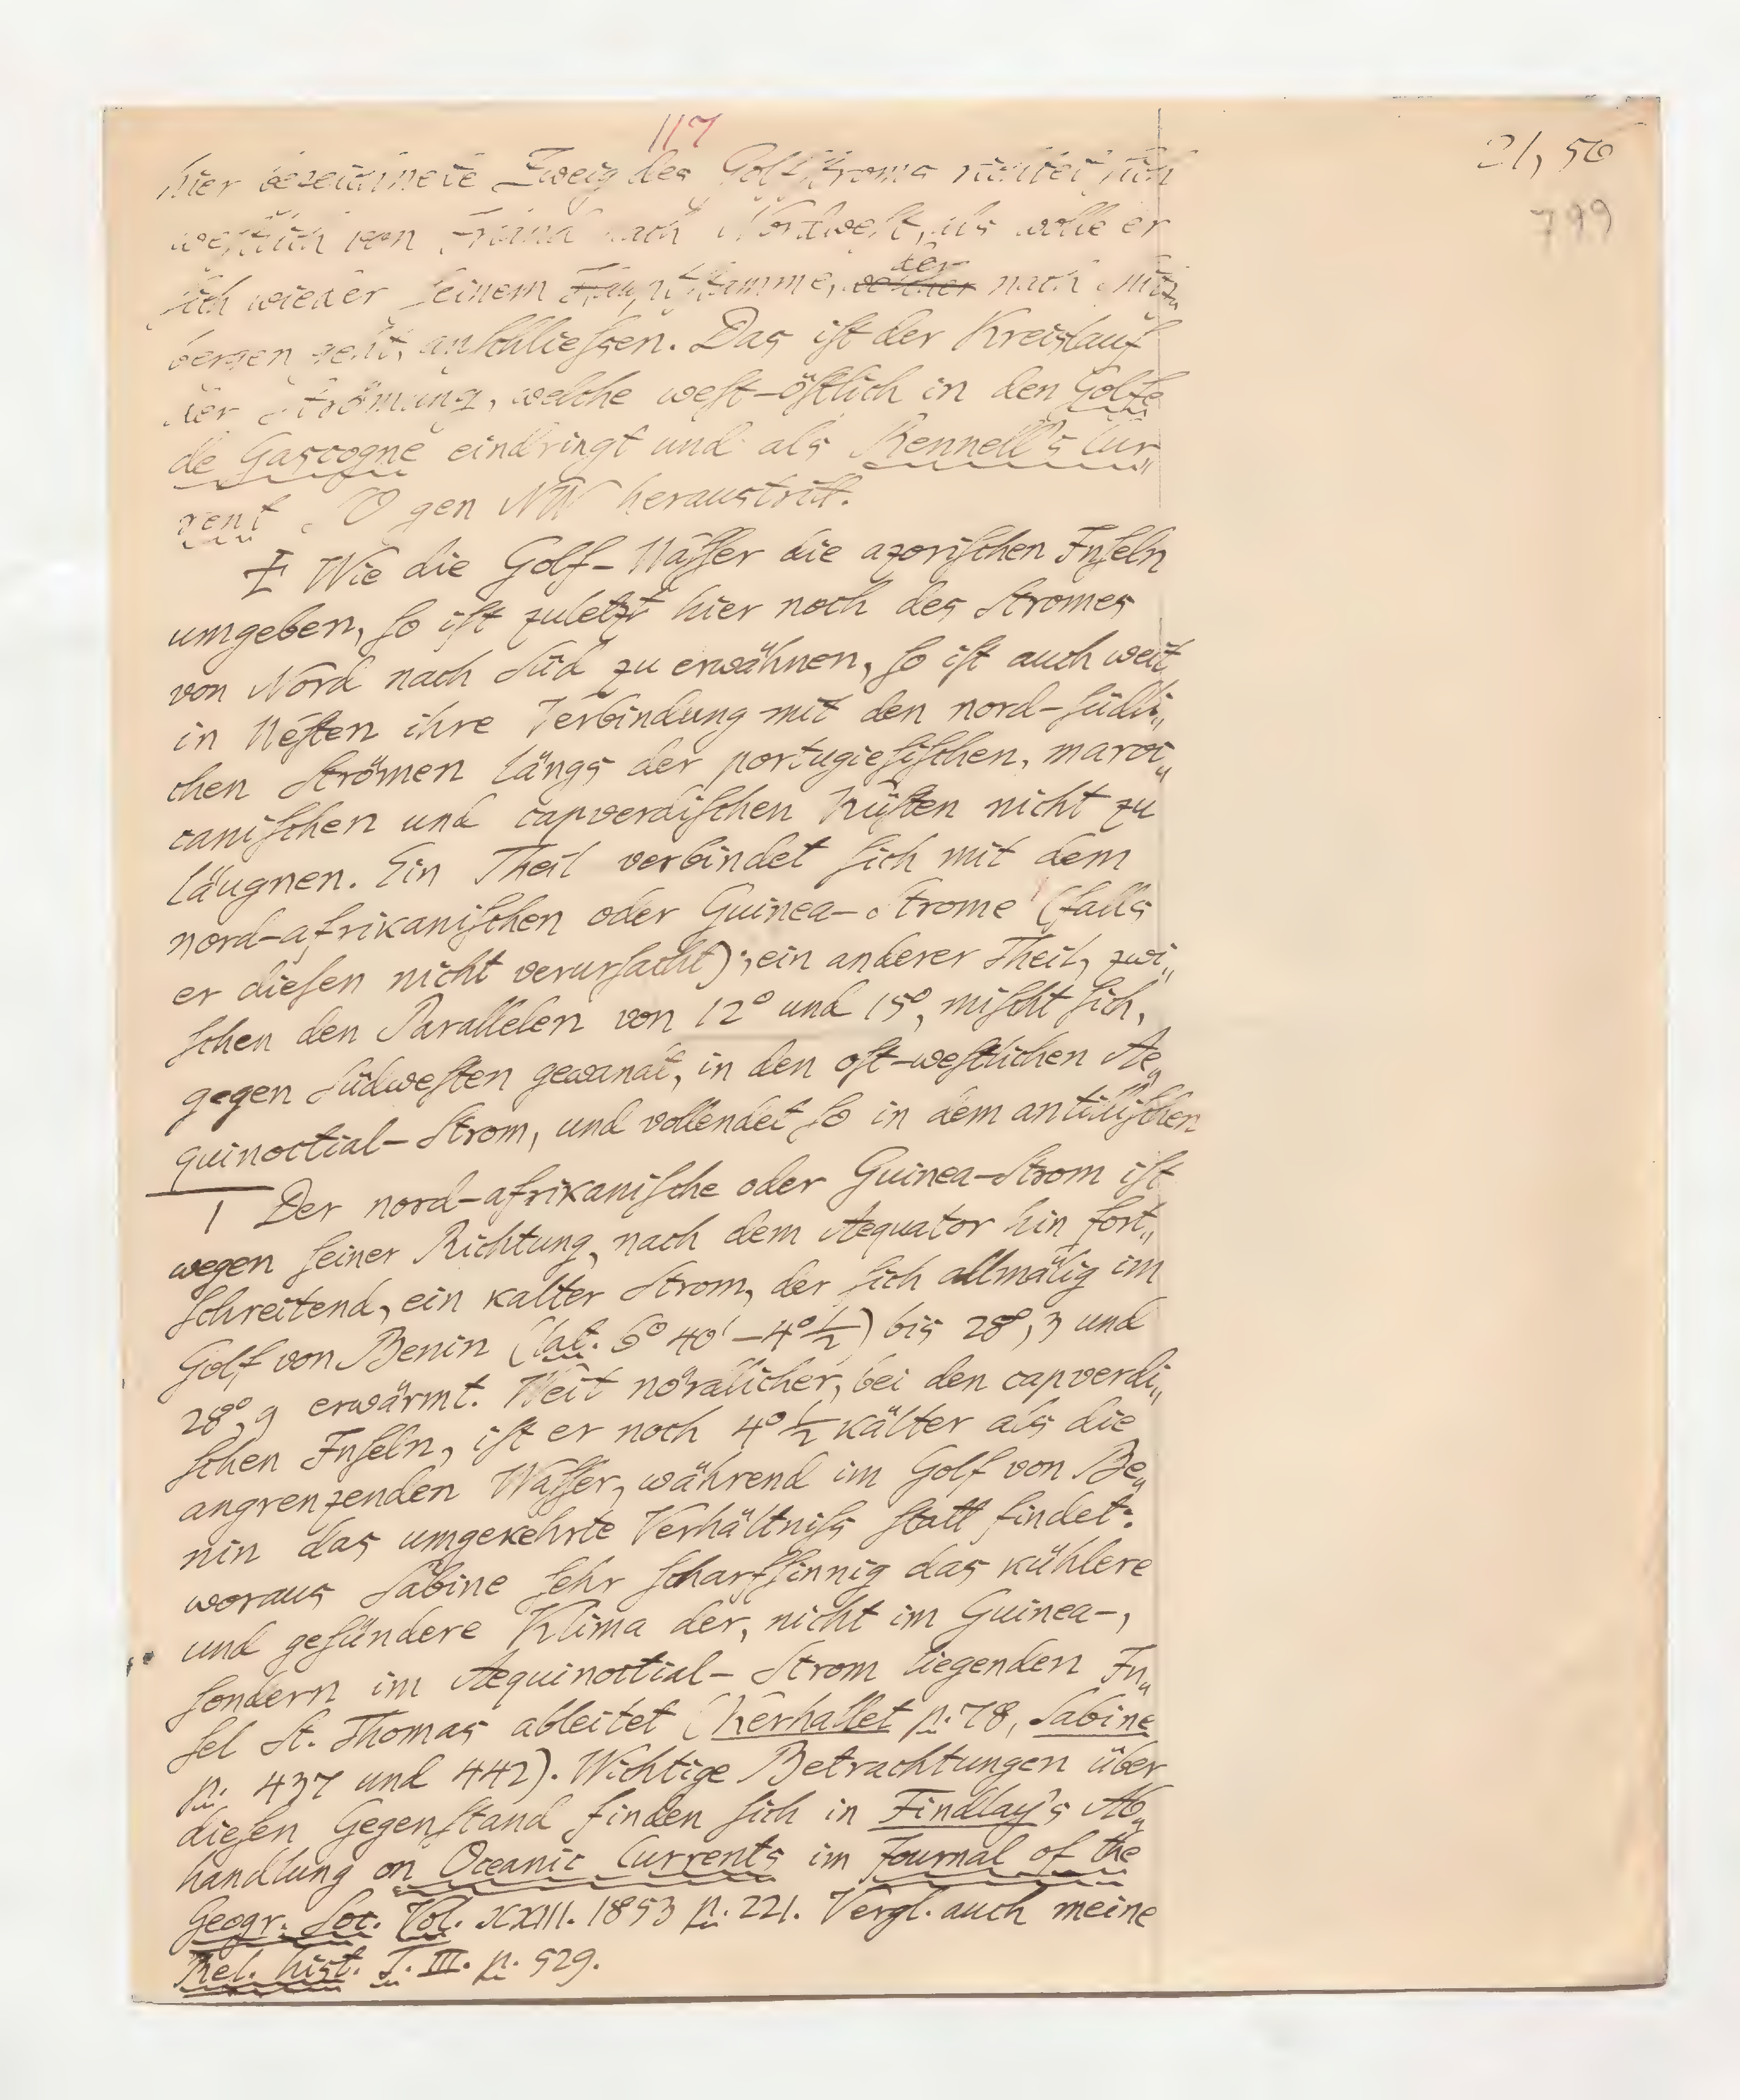 117
21, 56
799
hier bezeichnete Zweig des Golfstroms richtet sich
westlich von Irland nach Nordwest, als wolle er
sich wieder seinem Hauptstamme, welcher der nach Spitz„
bergen geht, anschliessen. Das ist der Kreislauf
der Strömung, welche west-östlich in den Golfe
de Gascogne eindringt und als Rennell's Cur„
rent gen NW heraustritt.
Wie die Golf-Wasser die azorischen Inseln
umgeben, so ist zuletzt hier noch des Stromes
von Nord nach Süd zu erwähnen, so ist auch weit
in Westen ihre Verbindung mit den nord-südli„
chen Strömen längs der portugiesischen, maroc„
canischen und capverdischen Küsten nicht zu
läugnen. Ein Theil verbindet sich mit dem
nord-afrikanischen oder Guinea-Strome 1 (falls
er diesen nicht verursacht); ein anderer Theil, zwi„
schen den Parallelen von 12° und 15°, mischt sich,
gegen Südwesten gewandt, in den ost-westlichen Ae„
quinoctial-Strom, und vollendet so in dem antillischen
1 Der nord-afrikanische oder Guinea-Strom ist
wegen seiner Richtung, nach dem Aequator hin fort„
schreitend, ein kalter Strom, der sich allmälig im
Golf von Benin (lat. 6° 40' – 4° ½) bis 28°,3 und
28°,9 erwärmt. Weit nördlicher, bei den capverdi„
schen Inseln, ist er noch 4° ½ kälter als die
angrenzenden Wasser, während im Golf von Be„
nin das umgekehrte Verhältniss statt findet:
woraus Sabine sehr scharfsinnig das kühlere
und gesündere Klima der, nicht im Guinea-,
sondern im Aequinoctial-Strom liegenden In„
sel St. Thomas ableitet (Kerhallet p. 78, Sabine
p. 437 und 442). Wichtige Betrachtungen über
diesen Gegenstand finden sich in Findlay's Ab„
handlung on Oceanic Currents im Journal of the
Geogr. Soc. Vol. XXIII. 1853 p. 221. Vergl. auch meine
Rel. hist. T. III. p. 529.